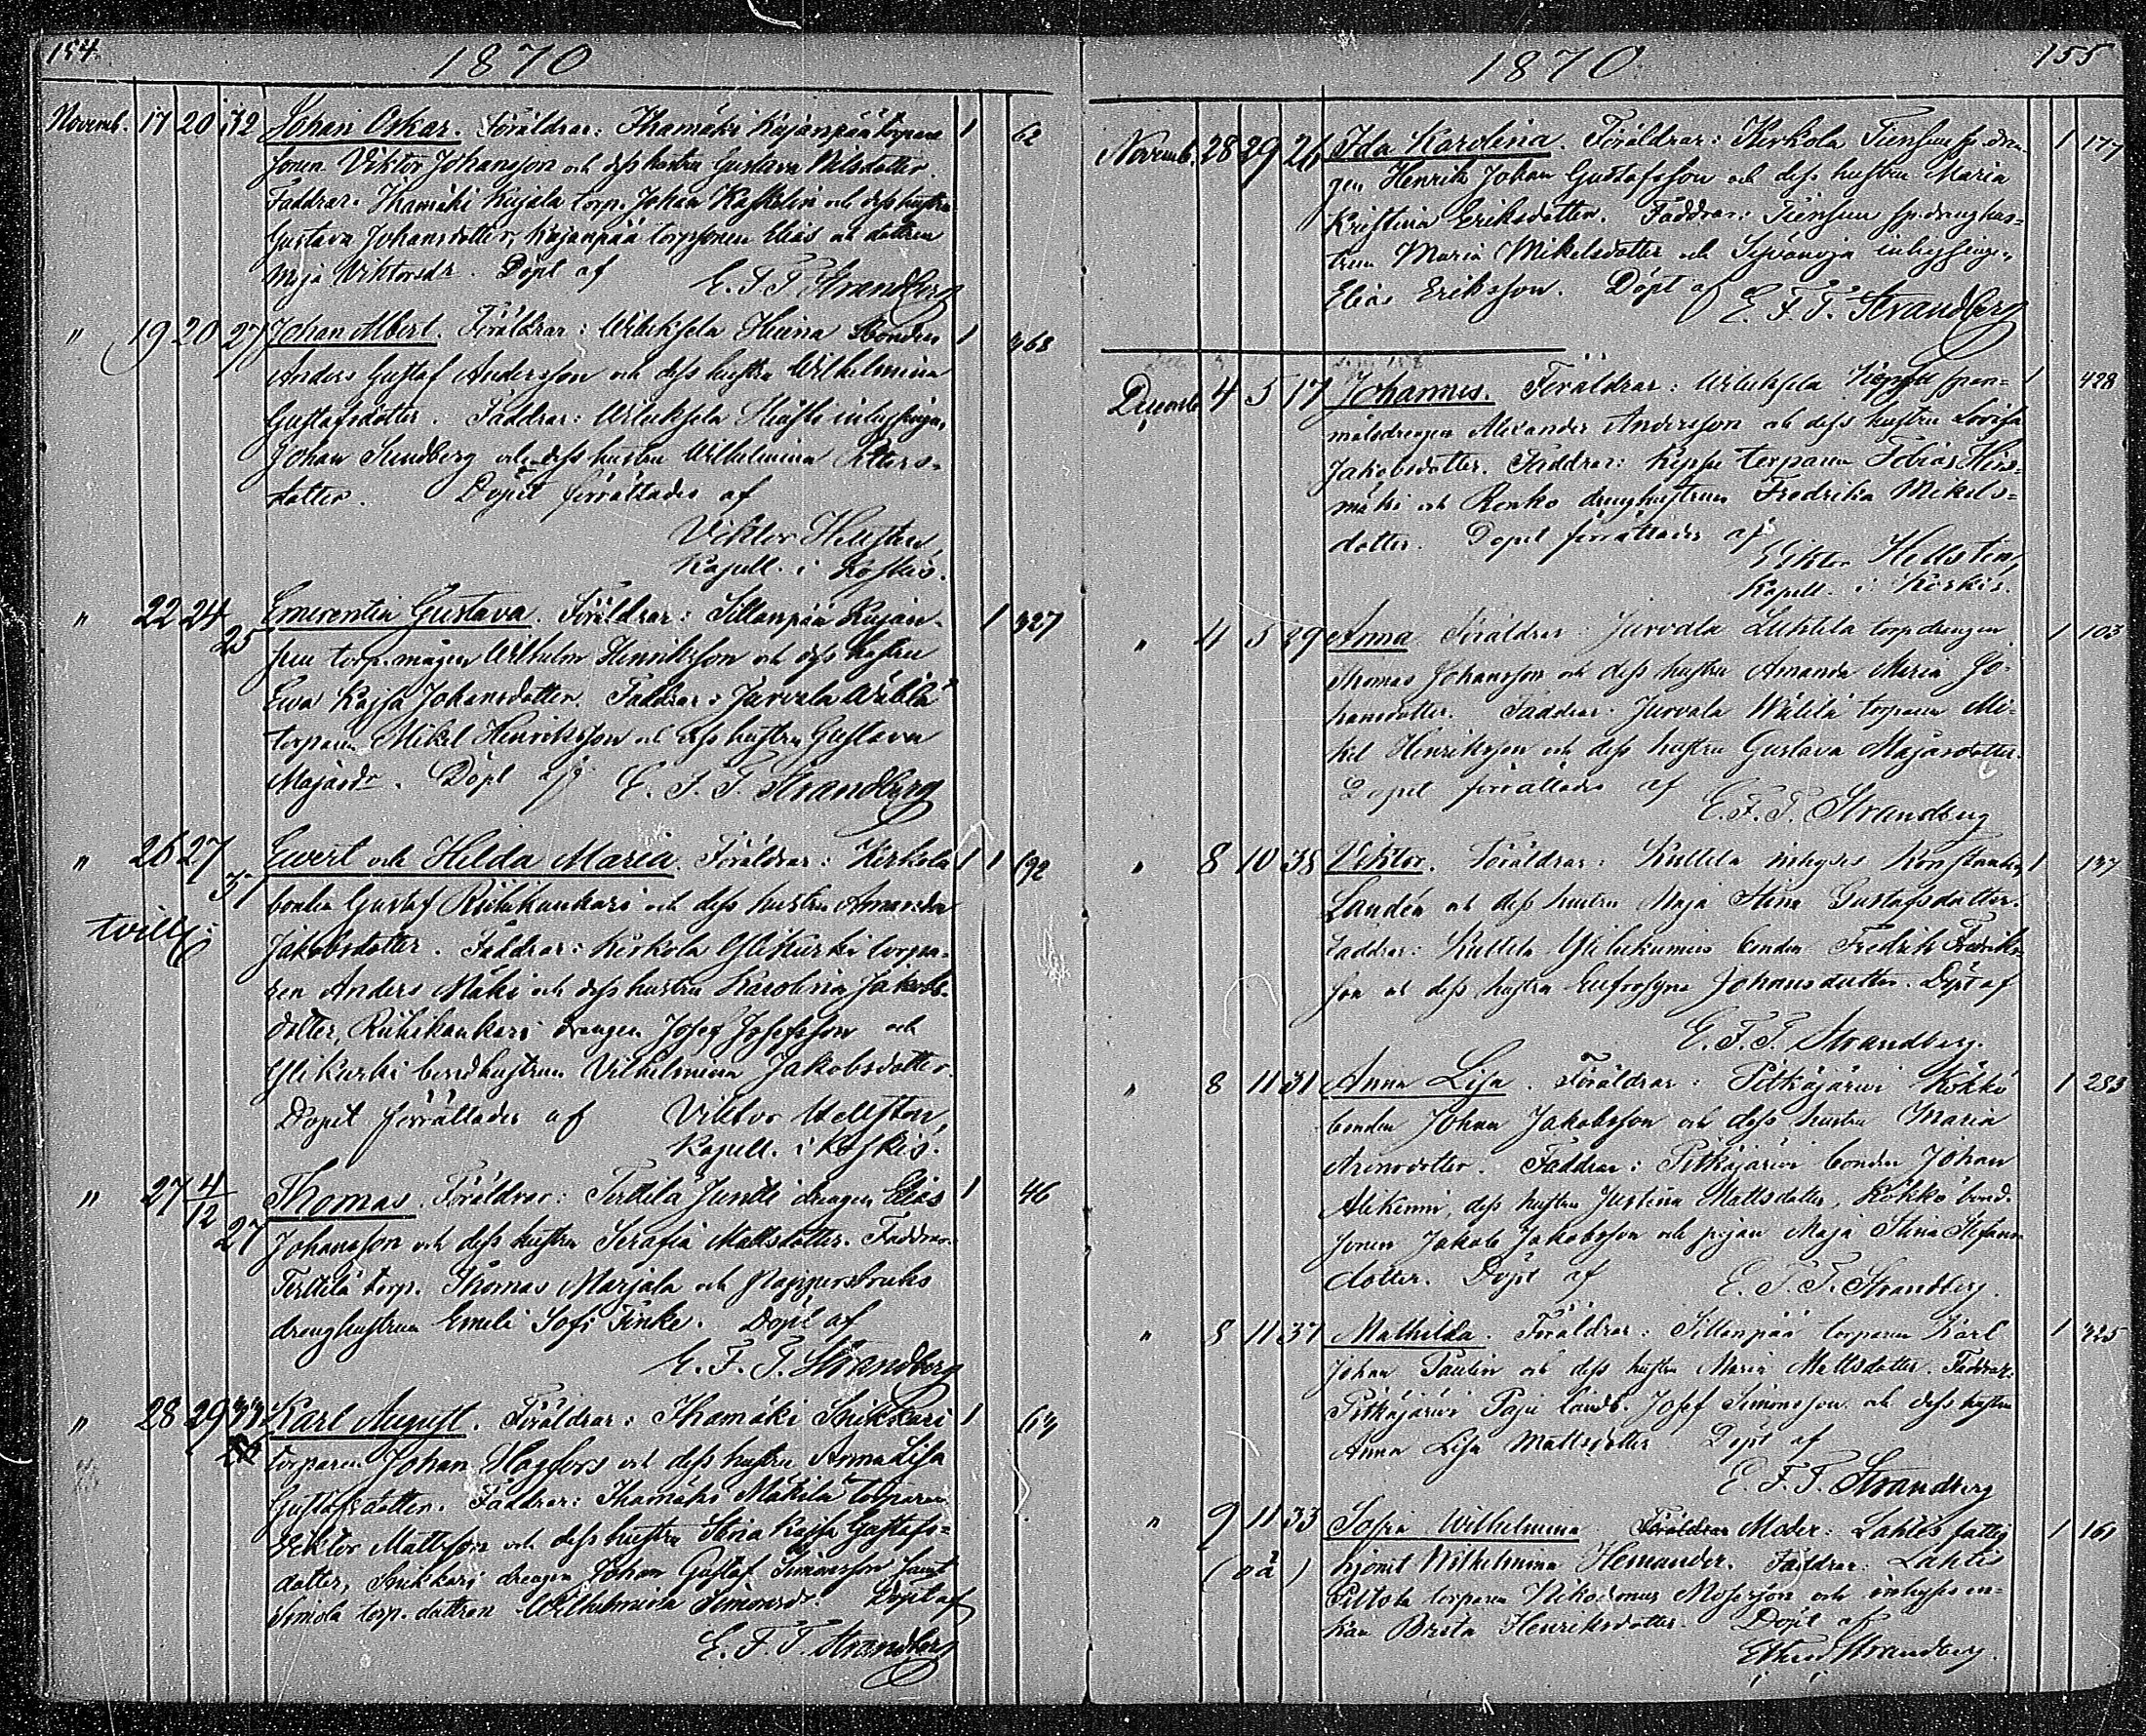 154.
1870
Novemb. 17 20 32 Johan Oskar. Föräldrar: Ihamäki Kujanpää torpare 1 62
sonen Viktor Johansson och dess hustru Gustava Nilsdotter.
Faddrar: Ihamäki Kujala torp. Johan Kaskelin och dess hustru
Gustava Johansdotter, Kujanpää torpsonen Elias och dottren
Maja Viktorsdr. Döpt af E. F. T. Strandberg
" 19 20 27 Johan Albert. Föräldrar: Wiluksela Heina bonden 1 368
Anders Gustaf Andersson och dess hustru Wilhelmina
Gustafsdotter. Faddrar: Wiluksela inhysingen
Johan Sundberg och dess hustru Wilhelmina Petters-
dotter. Dopet förrättades af
Viktor Hellsten,
Kapell. i Koskis.
" 22 24 25 Emerentia Gustava. Föräldrar: Sillanpää Kujan- 1 327
suu torp.mågen Wilhelm Henriksson och dess hustru
Ewa Kajsa Johansdotter. Faddrar: Jurvala Wälilä
torparen Mikel Henriksson och dess hustru Gustava
Majasdr. Döpt af E. F. T. Strandberg
" 26 27 37 Ewert och Hilda Maria. Föräldrar: Kerkola 1 1 192
tvill:
bonden Gustaf Riihikankari och dess hustru Amanda
Jakobsdotter. Faddrar: Kerkola Ylikurki torpa-
ren Anders Mäki och dess hustru Karolina Jakobs-
dotter, Riihikankari drengen Josef Josefsson och
Ylikurki bondhustrun Vilhelmina Jakobsdotter.
Dopet förrättades af Viktor Hellsten,
Kapell. i Koskis.
" 27 4/12 27 Thomas. Föräldrar: Terttilä Juntti drengen Elias 1 46
Johansson och dess hustru Serafia Mattsdotter. Faddrar:
Terttilä torp. Thomas Marjala och Pappersbruks
drenghustrun Emeli Sofi Finke. Döpt af
E. F. T. Strandberg
" 28 29 33 Karl August. Föräldrar: Ihamäki Snikkari 1 63
torparen Johan Hagfors och dess hustru Anna Lisa
Gustafsdotter. Faddrar: Ihamäki Mäkilä torparen
Viktor Mattsson och dess hustru Stina Kajsa Gustafs-
dotter, Snikkari drengen Johan Gustaf Simonsson samt
Simola torp. dottren Wilhelmina Simonsdr. Döpt af
E. F. T. Strandberg
1870
155
Novemb. 28 29 26 Ida Karolina. Föräldrar: Kerkola Tiensuu sp. dren- 1 177
gen Henrik Johan Gustafsson och dess hustru Maria
Kristina Eriksdotter. Faddrar: Tiensuu sp. drenghus-
trun Maria Mikelsdotter och inhysingen
Elias Eriksson. Döpt af E. F. T. Strandberg
Decemb. 4 5 17 Johannes. Föräldrar: Wiluksela span- 1 428
målsdrengen Alexander Andersson och dess hustru Lovisa
Jakobsdotter. Faddrar: torparen Tobias Hirs-
mäki och Renko drenghustrun Fredrika Mikels-
dotter. Dopet förrättades af
Viktor Hellsten,
Kapell. i Koskis.
" 4 5 29 Anna. Föräldrar: Jurvala Luhtila torp.drengen 1 103
Thomas Johansson och dess hustru Amanda Maria Jo-
hansdotter. Faddrar: Jurvala Wälilä torparen Mi-
kel Henriksson och dess hustru Gustava Majasdotter.
Dopet förrättades af E. F. T. Strandberg
" 8 10 38 Viktor. Föräldrar: Kuttila inhyses Konstantin 1 137
Landén och dess hustru Maja Stina Gustafsdotter.
Faddrar: Kuttila bonden Fredrik Fredriks-
son och dess hustru Eufrosyne Johansdotter. Döpt af
E. F. T. Strandberg.
" 8 11 31 Anna Lisa. Föräldrar: Pitkäjärwi Kökkö 1 283
bonden Johan Jakobsson och dess hustru Maria
Aronsdotter. Faddrar: Pitkäjärwi bonden Johan
Alikinni, dess hustru Justina Mattsdotter, Kökkö bond-
sonen Jakob Jakobsson och pigan Maja Stina Stefans-
dotter. Döpt af E. F. T. Strandberg.
" 8 11 37 Mathilda. Föräldrar: Sillanpää torparen Karl 1 325
Johan Paulin och dess hustru Maria Mattsdotter. Faddrar:
Pitkäjärwi Paju landb. Josef Simonsson och dess hustru
Anna Lisa Mattsdotter. Döpt af
E. F. T. Strandberg
" 9 11 33 Sofia Wilhelmina. Föräldrar Moder: Lahtis fattig 1 161
(oä) hjonet Wilhelmina Hemander. Faddrar: Lahtis
torparen Nikodemus Mosesson och inhyses en-
kan Brita Henriksdotter. Döpt af
Strandberg.